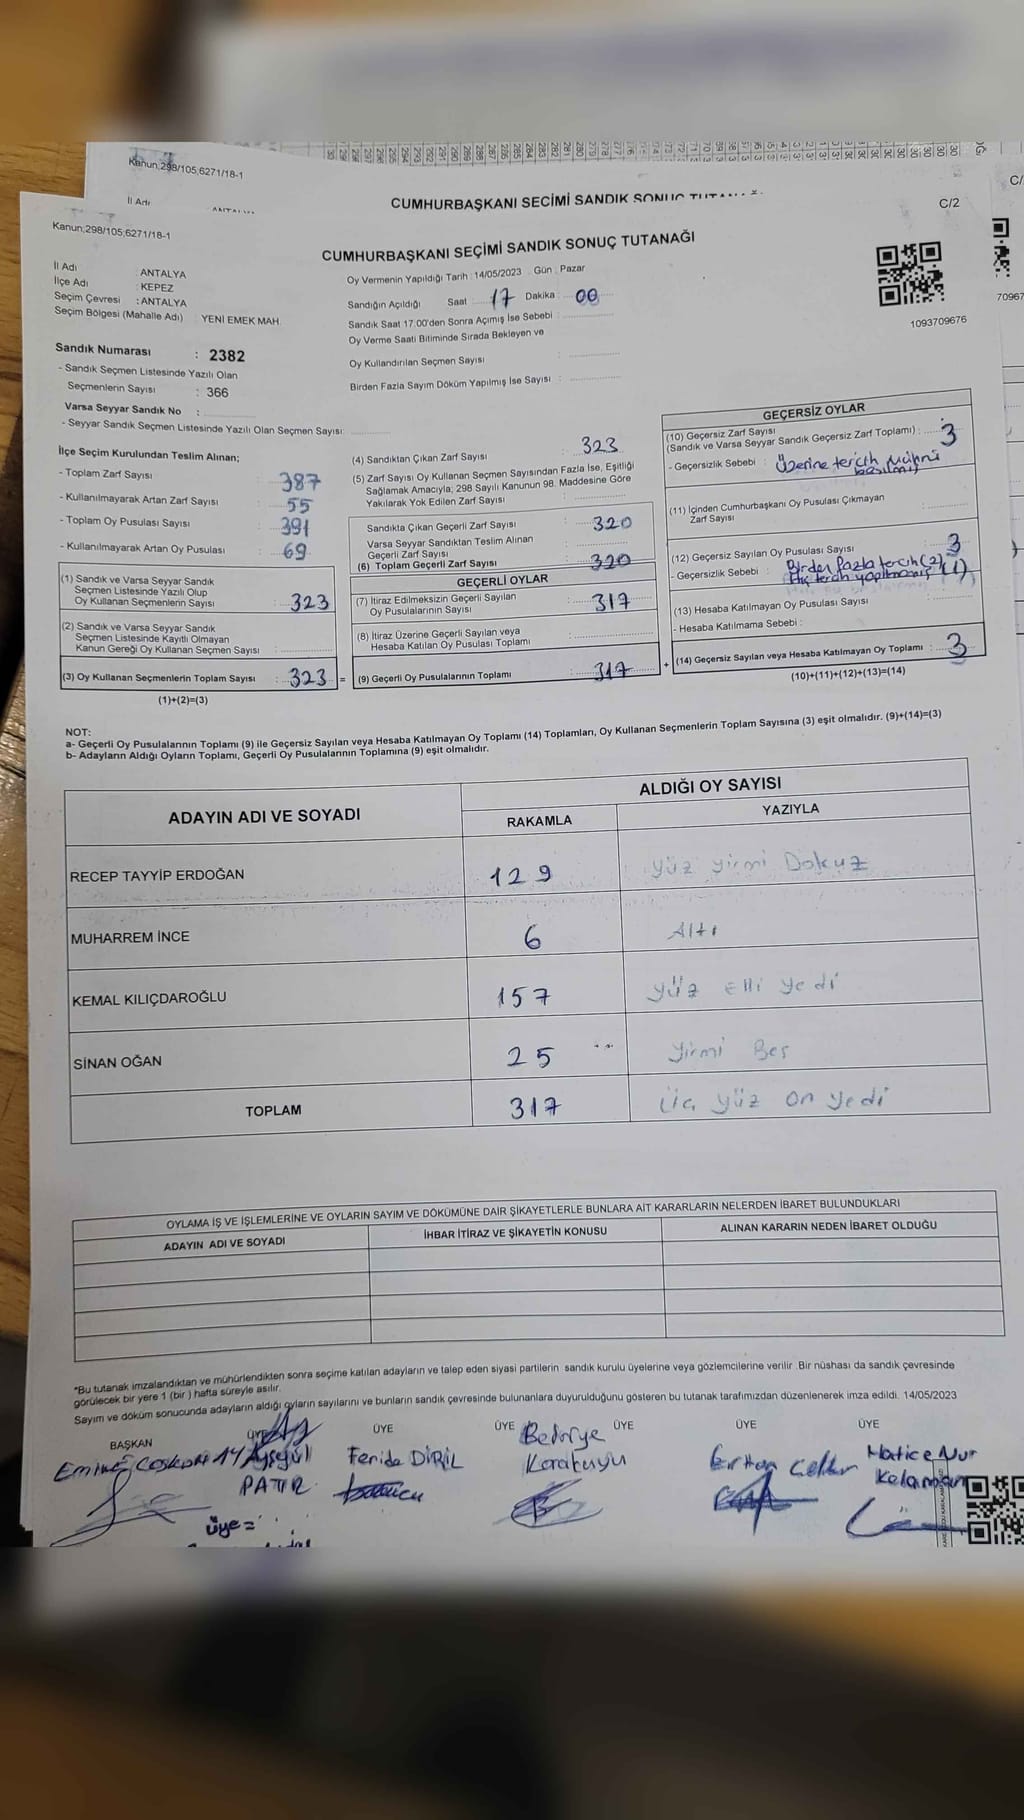 Kanun;298/105;6271/18-1
İl Adı
CUMHURBAŞKANI SECİMİ SANDIK SONUÇ TUTANA
C/
7096
C/2
Kanun;298/105;6271/18-1
CUMHURBAŞKANI SEÇİMİ SANDIK SONUÇ TUTANAĞI
1093709676
İl Adı : ANTALYA
İlçe Adı : KEPEZ
Seçim Çevresi : ANTALYA
Seçim Bölgesi (Mahalle Adı) : YENİ EMEK MAH.
Sandık Numarası : 2382
- Sandık Seçmen Listesinde Yazılı Olan
Seçmenlerin Sayısı : 366
Varsa Seyyar Sandık No :
- Seyyar Sandık Seçmen Listesinde Yazılı Olan Seçmen Sayısı:
Oy Vermenin Yapıldığı Tarih : 14/05/2023 . Gün : Pazar
Sandığın Açıldığı Saat 17 Dakika : 00
Sandık Saat 17:00'den Sonra Açımış İse Sebebi :
Oy Verme Saati Bitiminde Sırada Bekleyen ve
Oy Kullandırılan Seçmen Sayısı :
Birden Fazla Sayım Döküm Yapılmış İse Sayısı :
İlçe Seçim Kurulundan Teslim Alınan;
- Toplam Zarf Sayısı : 387
- Kullanılmayarak Artan Zarf Sayısı : 55
- Toplam Oy Pusulası Sayısı : 391
- Kullanılmayarak Artan Oy Pusulası : 69
(1) Sandık ve Varsa Seyyar Sandık
Seçmen Listesinde Yazılı Olup
Oy Kullanan Seçmenlerin Sayısı : 323
(2) Sandık ve Varsa Seyyar Sandık
Seçmen Listesinde Kayıtlı Olmayan
Kanun Gereği Oy Kullanan Seçmen Sayısı :
(3) Oy Kullanan Seçmenlerin Toplam Sayısı : 323 =
(1)+(2)=(3)
(4) Sandıktan Çıkan Zarf Sayısı : 323
(5) Zarf Sayısı Oy Kullanan Seçmen Sayısından Fazla İse, Eşitliği
Sağlamak Amacıyla; 298 Sayılı Kanunun 98. Maddesine Göre
Yakılarak Yok Edilen Zarf Sayısı :
Sandıkta Çıkan Geçerli Zarf Sayısı : 320
Varsa Seyyar Sandıktan Teslim Alınan
Geçerli Zarf Sayısı :
(6) Toplam Geçerli Zarf Sayısı : 320
GEÇERLİ OYLAR
(7) İtiraz Edilmeksizin Geçerli Sayılan
Oy Pusulalarının Sayısı : 317
(8) İtiraz Üzerine Geçerli Sayılan veya
Hesaba Katılan Oy Pusulası Toplamı :
(9) Geçerli Oy Pusulalarının Toplamı : 317 +
GEÇERSİZ OYLAR
(10) Geçersiz Zarf Sayısı
(Sandık ve Varsa Seyyar Sandık Geçersiz Zarf Toplamı) : 3
- Geçersizlik Sebebi : Üzerine tercih mührü
basılmış
(11) İçinden Cumhurbaşkanı Oy Pusulası Çıkmayan
Zarf Sayısı :
(12) Geçersiz Sayılan Oy Pusulası Sayısı : 3
- Geçersizlik Sebebi : Birden fazla tercih (2)
Hiç tercih yapılmamış (1)
(13) Hesaba Katılmayan Oy Pusulası Sayısı :
- Hesaba Katılmama Sebebi :
(14) Geçersiz Sayılan veya Hesaba Katılmayan Oy Toplamı : 3
(10)+(11)+(12)+(13)=(14)
NOT:
a- Geçerli Oy Pusulalarının Toplamı (9) ile Geçersiz Sayılan veya Hesaba Katılmayan Oy Toplamı (14) Toplamları, Oy Kullanan Seçmenlerin Toplam Sayısına (3) eşit olmalıdır. (9)+(14)=(3)
b- Adayların Aldığı Oyların Toplamı, Geçerli Oy Pusulalarının Toplamına (9) eşit olmalıdır.
ADAYIN ADI VE SOYADI ALDIĞI OY SAYISI
RAKAMLA YAZIYLA
RECEP TAYYİP ERDOĞAN 129 Yüz yirmi Dokuz
MUHARREM İNCE 6 Altı
KEMAL KILIÇDAROĞLU 157 Yüz Elli Yedi
SİNAN OĞAN 25 Yirmi Beş
TOPLAM 317 Üç yüz on yedi
OYLAMA İŞ VE İŞLEMLERİNE VE OYLARIN SAYIM VE DÖKÜMÜNE DAİR ŞİKAYETLERLE BUNLARA AİT KARARLARIN NELERDEN İBARET BULUNDUKLARI
ADAYIN ADI VE SOYADI İHBAR İTİRAZ VE ŞİKAYETİN KONUSU ALINAN KARARIN NEDEN İBARET OLDUĞU
*Bu tutanak imzalandıktan ve mühürlendikten sonra seçime katılan adayların ve talep eden siyasi partilerin sandık kurulu üyelerine veya gözlemcilerine verilir .Bir nüshası da sandık çevresinde
görülecek bir yere 1 (bir ) hafta süreyle asılır.
Sayım ve döküm sonucunda adayların aldığı oyların sayılarını ve bunların sandık çevresinde bulunanlara duyurulduğunu gösteren bu tutanak tarafımızdan düzenlenerek imza edildi. 14/05/2023
BAŞKAN ÜYE ÜYE ÜYE ÜYE ÜYE ÜYE
Emine Ayşegül PATIR
Feride DİRİL
Bedriye
Karakuyu
Hatice Nur
Üye =